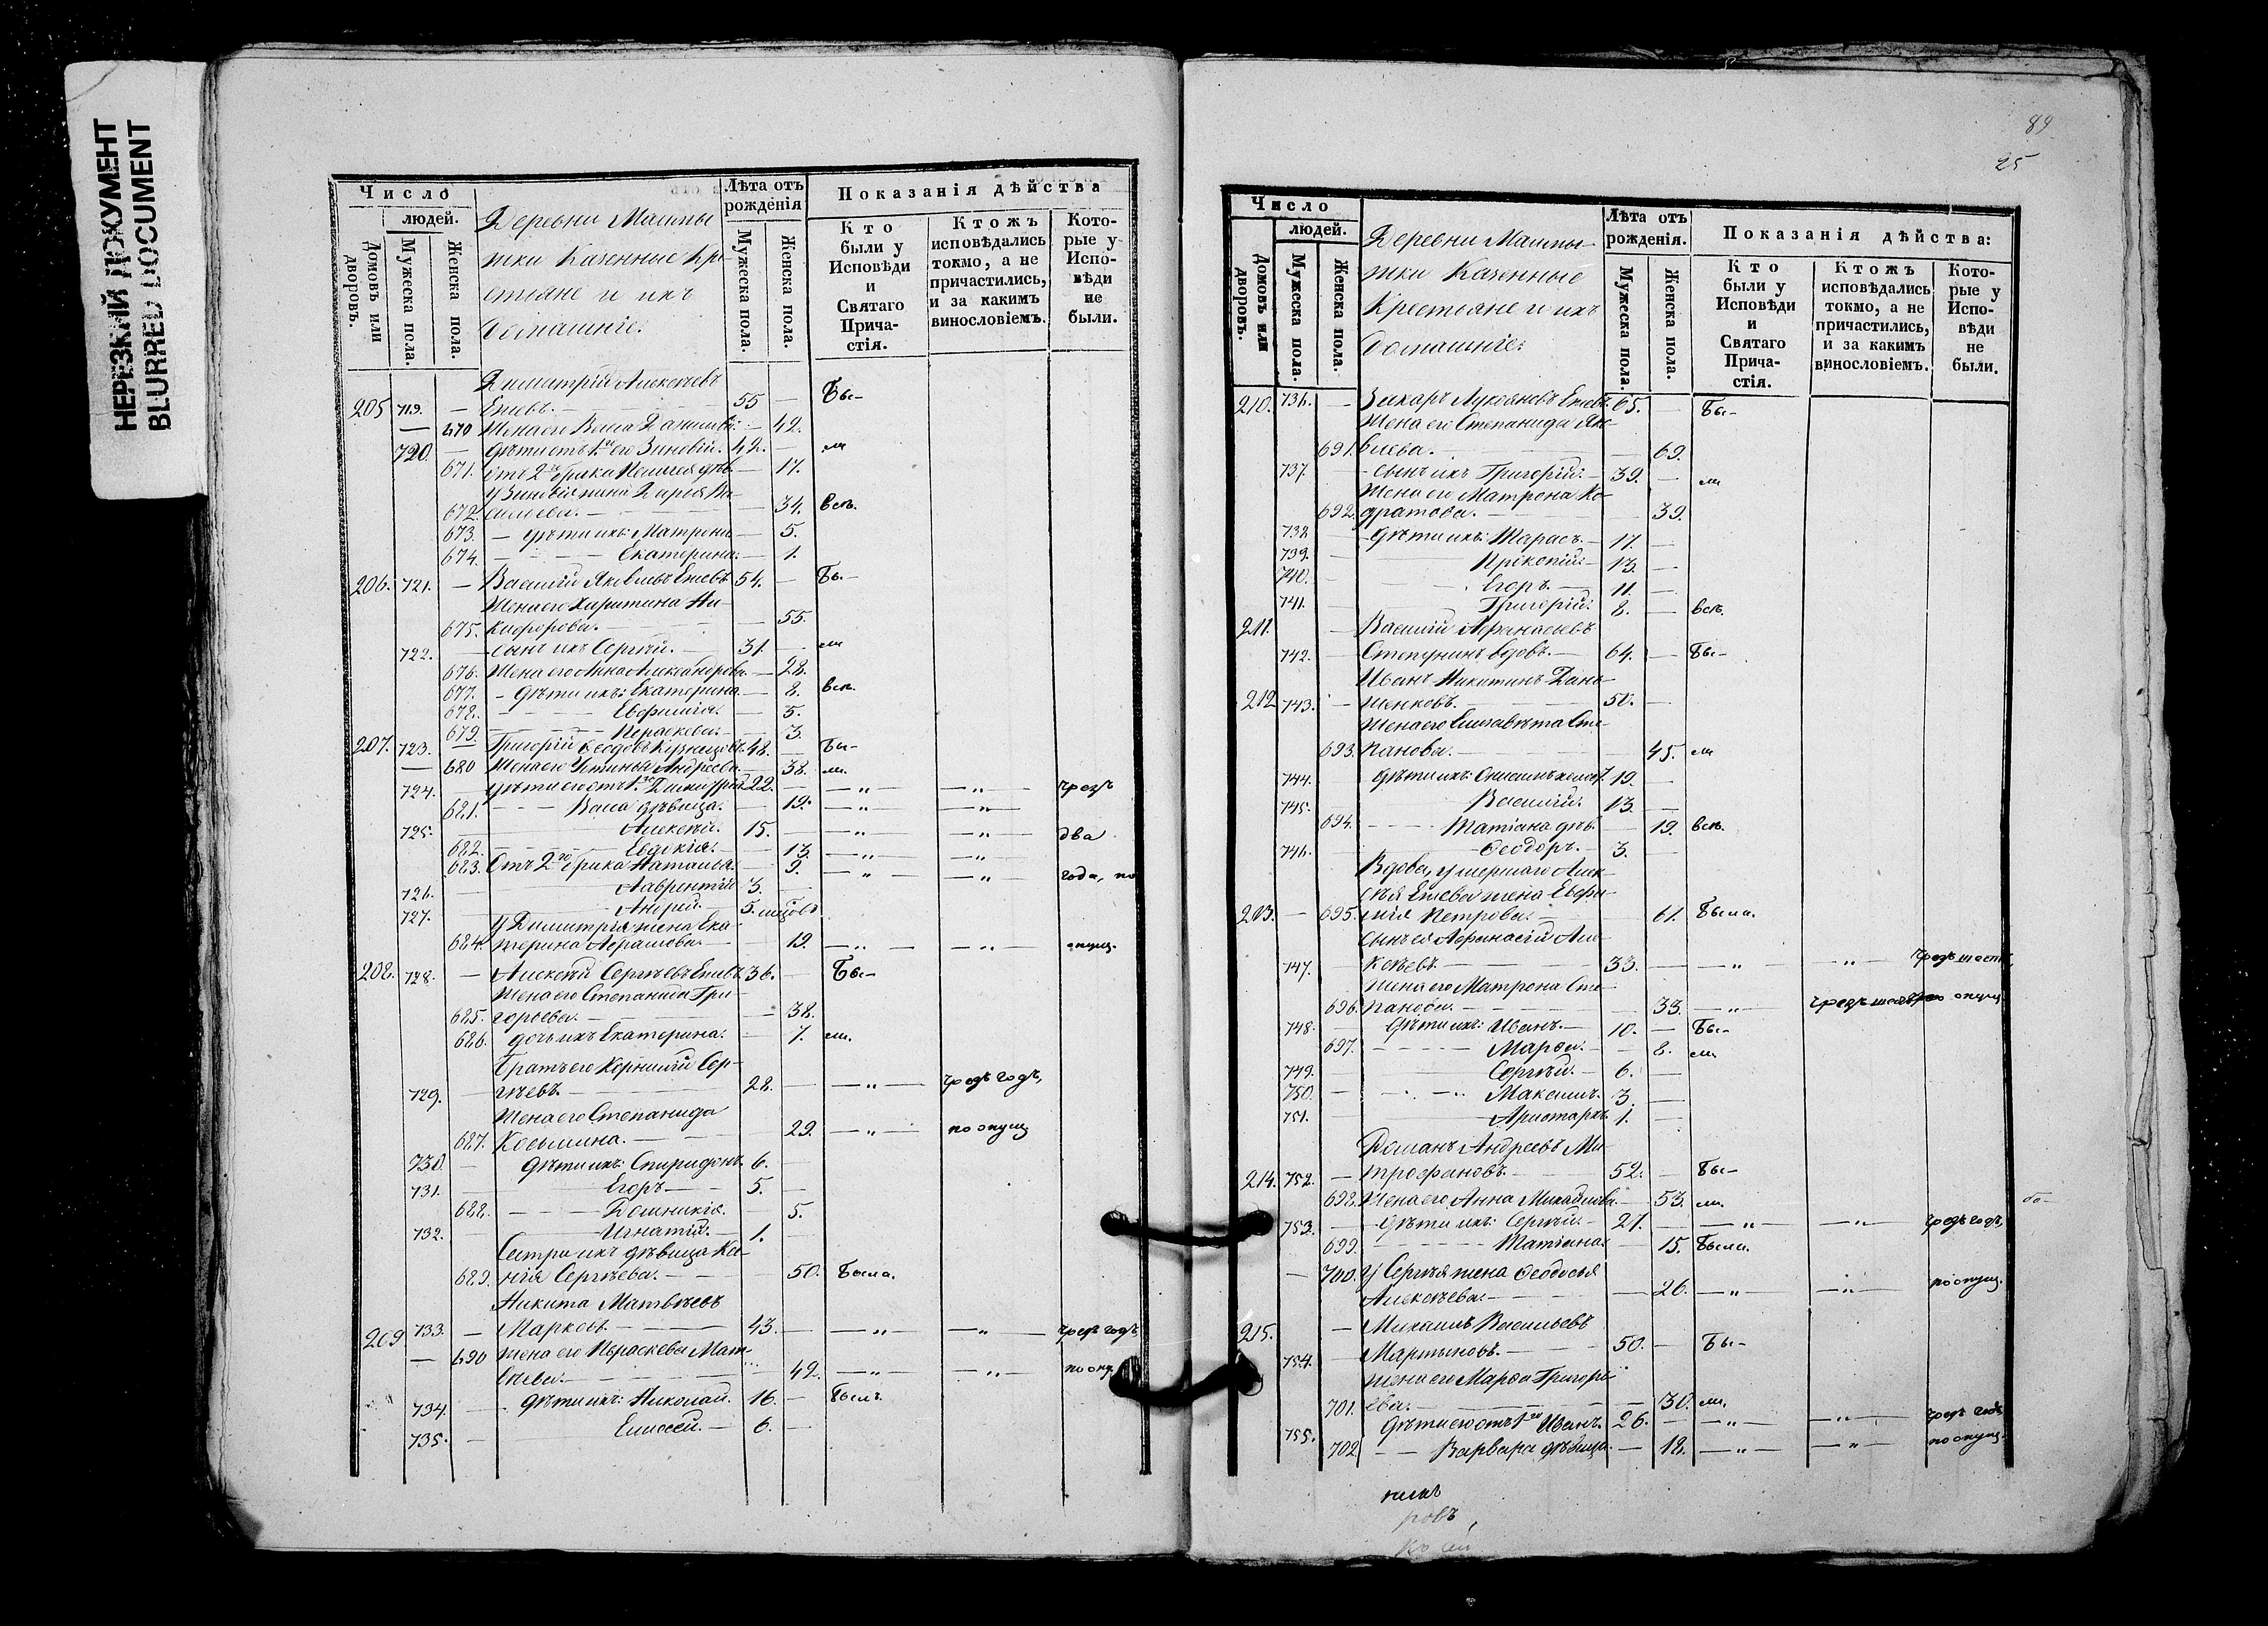 НЕРЕЗКИЙ ДОКУМЕНТ
BLURRED DOCUMENT
Число
людей.
Домовъ или дворовъ.
Мужеска пола.
Женска пола.
Деревни
Казенные Кре-
стіяне и ихъ
домашніе.
Лѣта отъ рожденія
Мужеска пола.
Женска пола.
Показанія дѣйства
Кто были у Исповѣди и Святаго Причастія.
Ктожъ исповѣдались токмо, а не причастились, и за какимъ винословіемъ.
Которые у Исповѣди не были.
Димитрій Алексѣевъ
205 719. — 55 — Бы-
— 670 Жена его Васса 42.
720. — Дѣти отъ 1го его Зиновій. 42. — ли
671. Отъ 2го брака дѣв. — 17.
У Зиновія жена Дарья Ва-
672. сильева. — 34. всѣ.
673. — Дѣти ихъ: Матрона — 5.
674. — Екатерина. — 1.
206. 721. — Василій Яковлевъ 54. — Бы-
Жена его Харитина Ни-
675. кифорова. — 55.
722. — сынъ ихъ Сергѣй. — 31. — ли
676. Жена его Анна Александрова — 28.
677. — Дѣти ихъ: Екатерина — 8. всѣ.
678. — Евфимія. — 5.
679. — Параскева. — 3.
207. 723. — Григорій Ѳеодовъ Кузнецовъ 48. — Бы-
— 680 Жена его Устинья Андреева. — 38. ли.
724. — Дѣти его отъ 1го Димитрій 22. — „ — „ чрезъ
681. — Васса дѣвица. — 19. — „ — „
725. — Алексѣй. 15. — „ — „ два
682. — Евдокія. — 13. — „ — „
683. Отъ 2го брака Наталья. — 9. — „ — „ года, по
726. Лаврентій 3. —
727. — Андрей. — 5. мѣсцовъ
У Димитрія жена Ека-
684. терина Абрамова. — 19. — „ — „ опущ.
208. 728. — Алексѣй Сергѣевъ 36. — Бы-
Жена его Степанида Гри-
685. горьева. — 38.
686. дочь ихъ Екатерина. — 7. ли.
Братъ его Корнилій Сер-
729. гѣевъ. — 28. — „ — чрезъ годъ,
Жена его Степанида
687. Косьмина. — 29. — „ — по опущ
730. — Дѣти ихъ: Спиридонъ 6. —
731. — Егоръ — 5. —
688. — Домникія. — 5.
732. — Игнатій. — 1. —
Сестра ихъ дѣвица Ксе-
689. нія Сергѣева. — 50. Была.
Никита Матвѣевъ
209 733. — Марковъ. — 43. — „ — „ — чрезъ годъ
— 690 Жена его Параскева Мат-
вѣева. — 42. — „ — „ — по опу.
734. — Дѣти ихъ: Николай. 16. — Былъ.
735. — Елисей. — 6. —
89
25
Число
людей.
Домовъ или дворовъ.
Мужеска пола.
Женска пола.
Деревни
Казенные
Крестіяне и ихъ
домашніе:
Лѣта отъ рожденія.
Мужеска пола.
Женска пола.
Показанія дѣйства:
Кто были у Исповѣди и Святаго Причастія.
Ктожъ исповѣдались токмо, а не причастились, и за какимъ винословіемъ.
Которые у Исповѣди не были.
210. 736. — Захаръ Лукояновъ 65. — Бы-
Жена его Степанида Яко-
691. влева. — 69.
737. — сынъ ихъ Григорій. — 39. — ли
Жена его Матрона Ко-
692. дратова. — 39.
738 — Дѣти ихъ: Тарасъ. — 17. —
739. — Прокопій. — 13. —
740. — Егоръ. — 11. —
741. Григорій: 8. — всѣ.
211. — Василій Афанасьевъ
742. — вдовъ. — 64. — Бы-
Иванъ Никитинъ Дани-
212 743. — 50. —
Жена его Елисавѣта Сте-
693. панова. — 45. ли
744. Дѣти ихъ: 19. —
745. Василій. 13. —
694. — Татіана дѣв. — 19. всѣ.
746. — Ѳеодоръ. — 3. —
Вдова, умершаго Алек-
сѣя жена Евфи-
213. — 695. мія Петрова. — 61. Была.
Сынъ ея Афанасій Але-
747. ксѣевъ. — 33. — „ — „ чрезъ
Жена его Матрона Сте-
696. панова. — 33. — „ опущ
748. — Дѣти ихъ: Иванъ. — 10. — Бы-
697. — Марѳа. — 8. ли.
749. Сергѣй. — 6. —
750. — Максимъ. 3. —
751. — Аристархъ 1. —
Романъ Андреевъ Ми-
214. 752. — трофановъ. — 52. — Бы-
698. Жена его Анна Михайлова — 53. ли.
753. — Дѣти ихъ: Сергѣй. — 27. — „ — „ чрезъ годъ,
699. — Татіана. — 15. Была.
— 700. У Сергѣя жена Ѳеодосья
Алексѣева. — 26. — „ — „ по опущ.
215. — Михаилъ Васильевъ
754. — Мартыновъ. — 50. — Бы-
Жена его Марѳа Григорь-
701. ева. — 30. ли.
755. Дѣти его отъ 1го Иванъ. 26. — „ — „ чрезъ годъ
702 — Варвара дѣвица. — 18. — „ — „ по опущ.
ровъ